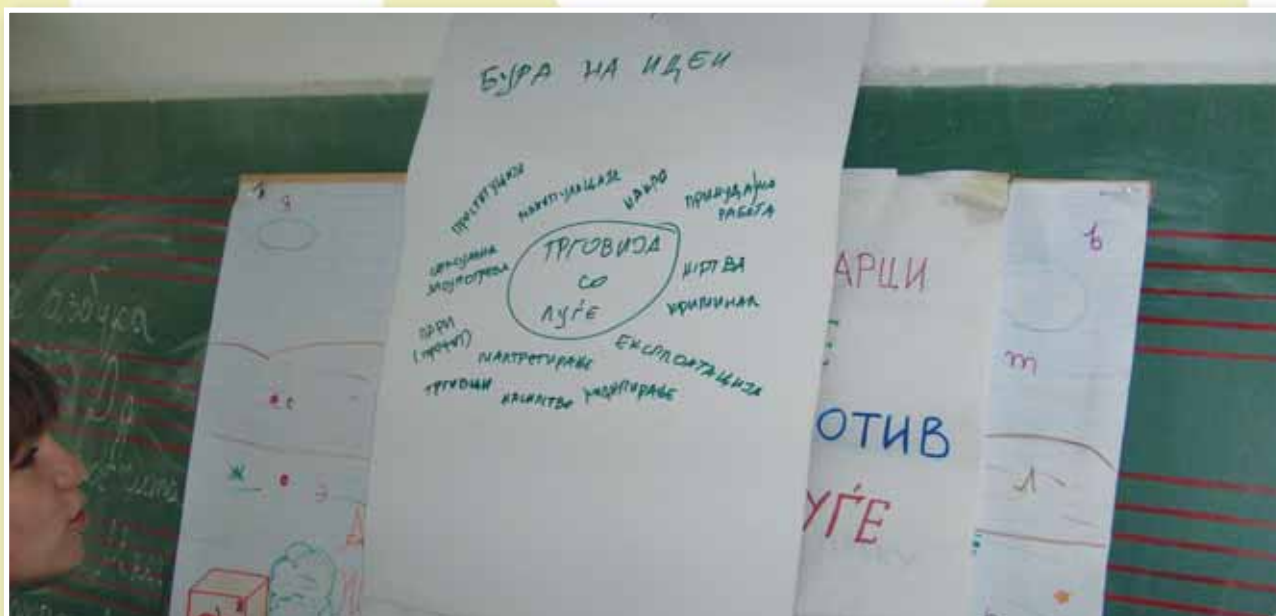 БУРА НА ИДЕИ
проституција
манипулација
принудна
работа
сексуална
злоупотреба
ТРГОВИЈА
СО
ЛУЃЕ
жртва
криминал
пари
(профит)
малтретирање
ЕКСПЛОАТАЦИЈА
трговци
насилство
киднапирање
АРЦИ
ОТИВ
УЃЕ
азбука
ж
э
в
т
л